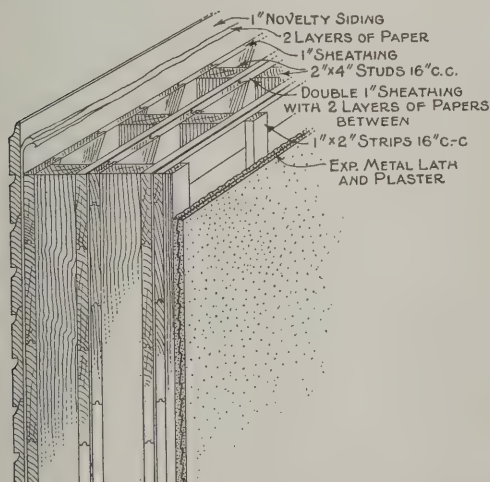 1" NOVELTY SIDING
2 LAYERS OF PAPER
1" SHEATHING
2"x4" STUDS 16" C.C.
DOUBLE 1" SHEATHING
WITH 2 LAYERS OF PAPERS
BETWEEN
1"x2" STRIPS 16" C-C
EXP. METAL LATH
AND PLASTER